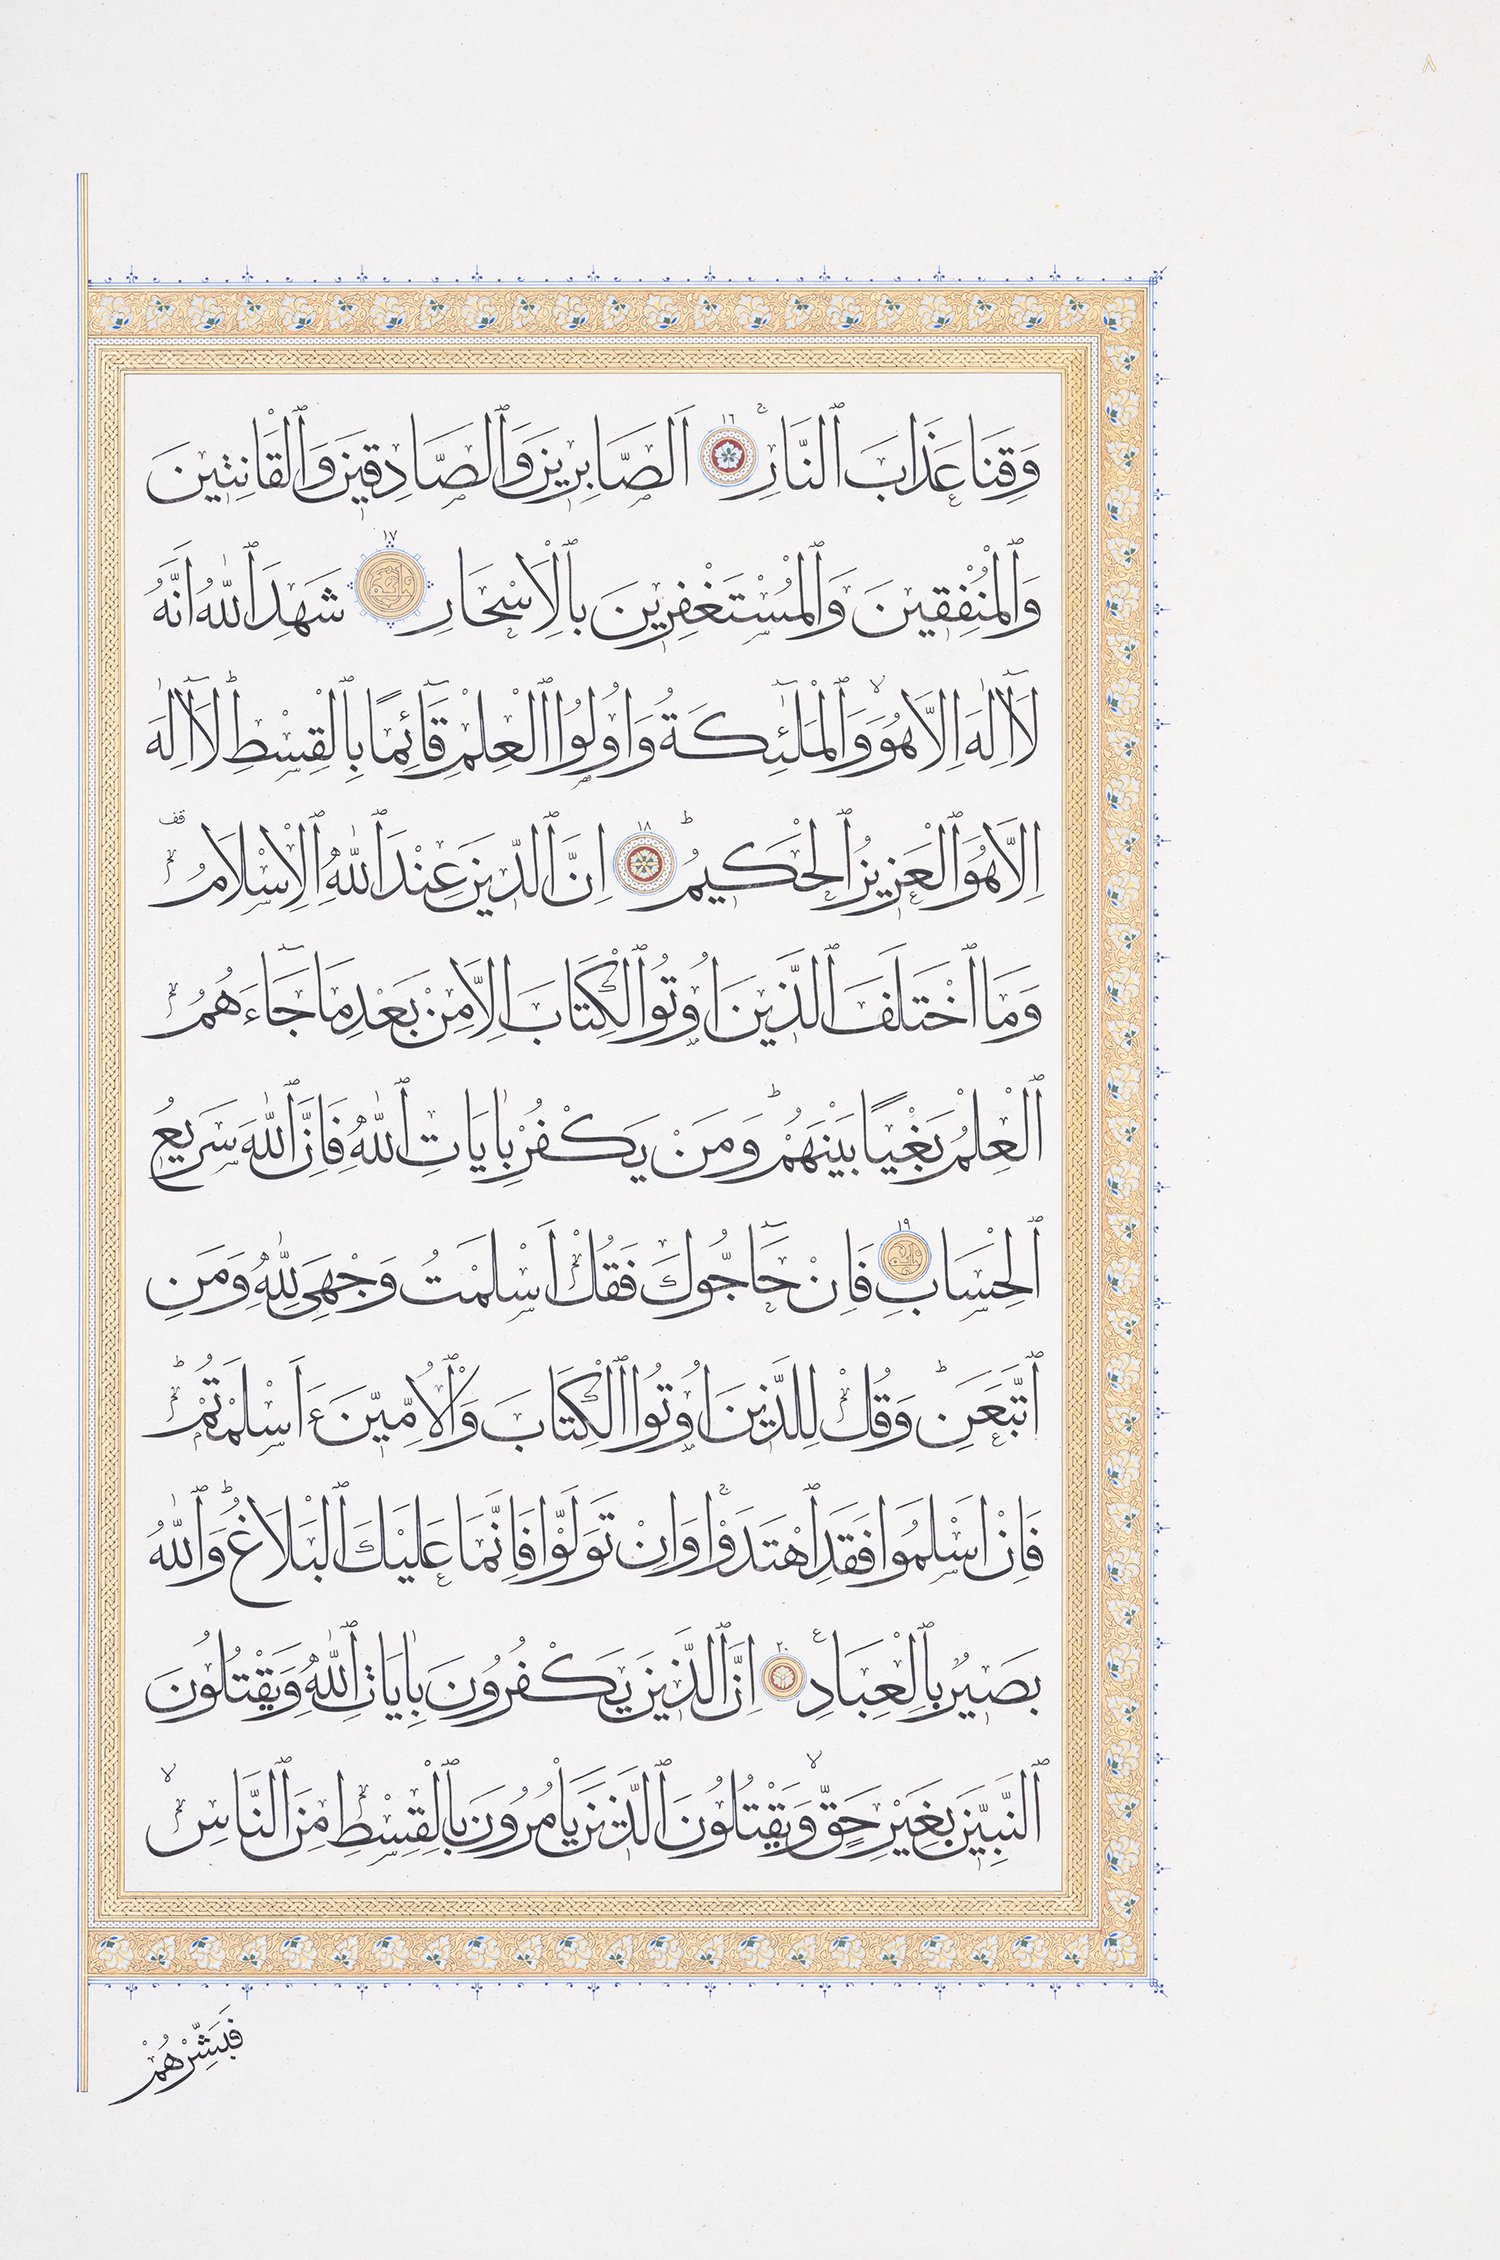 ٨
وَقِنَا عَذَابَ ٱلنَّارِ ١٦ اَلصَّابِرِينَ وَٱلصَّادِقِينَ وَٱلْقَانِتِينَ
وَٱلْمُنْفِقِينَ وَٱلْمُسْتَغْفِرِينَ بِٱلْاَسْحَارِ ١٧ شَهِدَ ٱللّٰهُ اَنَّهُ
لَآ اِلٰهَ اِلَّا هُوَۙ وَٱلْمَلٰٓئِكَةُ وَاُولُوا ٱلْعِلْمِ قَآئِمًا بِٱلْقِسْطِؕ لَآ اِلٰهَ
اِلَّا هُوَ ٱلْعَزِيزُ ٱلْحَكِيمُؕ ١٨ اِنَّ ٱلدِّينَ عِنْدَ ٱللّٰهِ ٱلْاِسْلَامُ قف
وَمَا ٱخْتَلَفَ ٱلَّذِينَ اُوتُوا ٱلْكِتَابَ اِلَّا مِنْ بَعْدِ مَا جَآءَهُمُ
ٱلْعِلْمُ بَغْيًا بَيْنَهُمْؕ وَمَنْ يَكْفُرْ بِاٰيَاتِ ٱللّٰهِ فَاِنَّ ٱللّٰهَ سَرِيعُ
ٱلْحِسَابِ ١٩ فَاِنْ حَآجُّوكَ فَقُلْ اَسْلَمْتُ وَجْهِىَ لِلّٰهِ وَمَنِ
ٱتَّبَعَنِؕ وَقُلْ لِلَّذِينَ اُوتُوا ٱلْكِتَابَ وَٱلْاُمِّيّنَ ءَاَسْلَمْتُمْؕ
فَاِنْ اَسْلَمُوا فَقَدِ ٱهْتَدَوْاۚ وَاِنْ تَوَلَّوْا فَاِنَّمَا عَلَيْكَ ٱلْبَلَاغُؕ وَٱللّٰهُ
بَصِيرٌ بِٱلْعِبَادِ ٢٠ اِنَّ ٱلَّذِينَ يَكْفُرُونَ بِاٰيَاتِ ٱللّٰهِ وَيَقْتُلُونَ
ٱلنَّبِيّنَ بِغَيْرِ حَقٍّۙ وَيَقْتُلُونَ ٱلَّذِينَ يَاْمُرُونَ بِٱلْقِسْطِ مِنَ ٱلنَّاسِۙ
فَبَشِّرْهُمْ